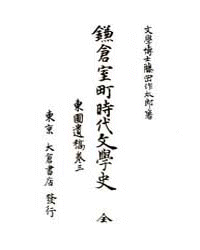 文學博士藤岡作太郎著
鎌倉室町時代文學史 全
東圃遺稿卷三
東京 大倉書店 發行